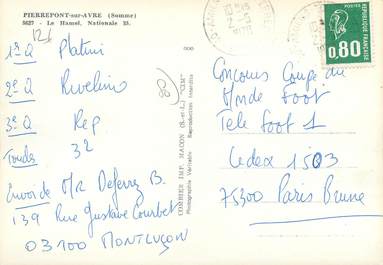 PIERREPONT-sur-AVRE (Somme)
8627 - Le Hamel, Nationale 35.
126
1re Q Platini
2e Q Rivelino
3e Q Rep
Toudes 32
Envoi de M/R Deferez B.
139 Rue Gustave Courbet
03100 MONTLUÇON
COMBIER IMP. MACON (S.-et-L.) "CIM"
Photographie Véritable Reproduction Interdite
POSTES
RÉPUBLIQUE FRANÇAISE
0,80
Concours Coupe du
Monde Foot
Tele Foot 1
Cedex 1503
75300 Paris Brune